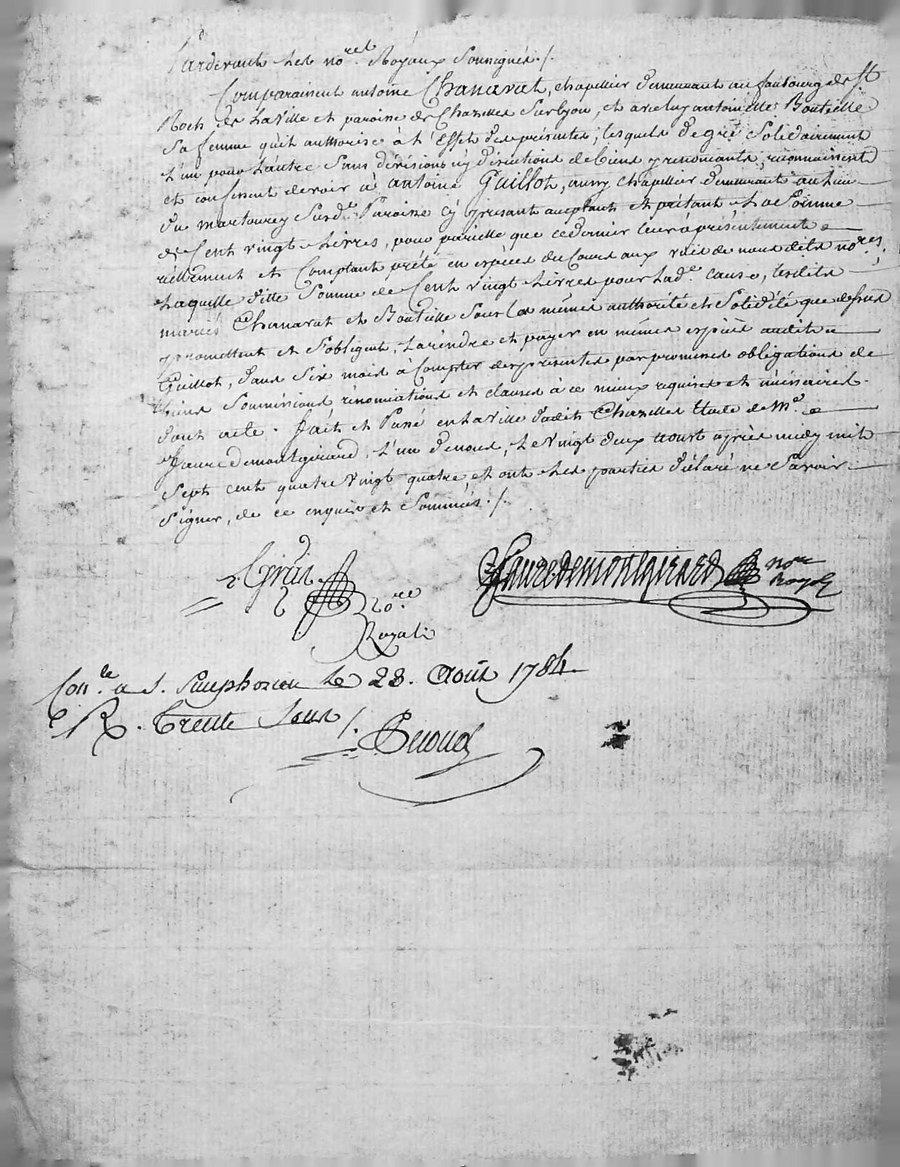 Pardevant Les no.res Royaux Soussignés /.
Comparaissent antoine Chanavat, chapellier demeurant au faubourg de St
Roch, de La ville et paroisse de Chazelles Sur Lyon, et avec luy antoinette Bouteille
Sa femme qu'il authorise à l'Effet des présentes, lesquels de gré Solidairement
L'un pour L'autre Sans divisions ny discutions de biens y renonçants, reconnaissent
et confessent devoir à antoine Guillot, aussy chapellier demeurant au lieu
du martourey Susd.e Paroisse cy présent acceptant et prêtant La Somme
de Cent vingt Livres, pour pareille que ce dernier leur a présentement
réellement et Comptant prêté en espèces du Cours aux vues de nous dits no.res,
Laquelle ditte Somme de Cent vingt Livres pour Lad.e Cause, Lesdits
mariés Chanavat et Bouteille Sous les mêmes authorité et Solidité que dessus
promettent et S'obligent, La rendre et payer en mêmes espèces audit
Guillot, dans Six mois à Compter des présentes par promesses obligations de
biens Soumissions renonciations et clauses à ce mieux requises et nécessaires.
dont acte. fait et Passé en La ville dudit Chazelles Etude de M.e
faure demontgirard, L'un de nous, Le vingt deux aoust après midy mil
Sept cent quatre vingt quatre et ont Les parties déclaré ne Savoir
Signer, de ce enquis et Sommés ./.
no.re
Royal
fauredemontgirard no.re
royal
Con.le a S. Simphorien le 28. Août 1784
R. Trente Sous /.